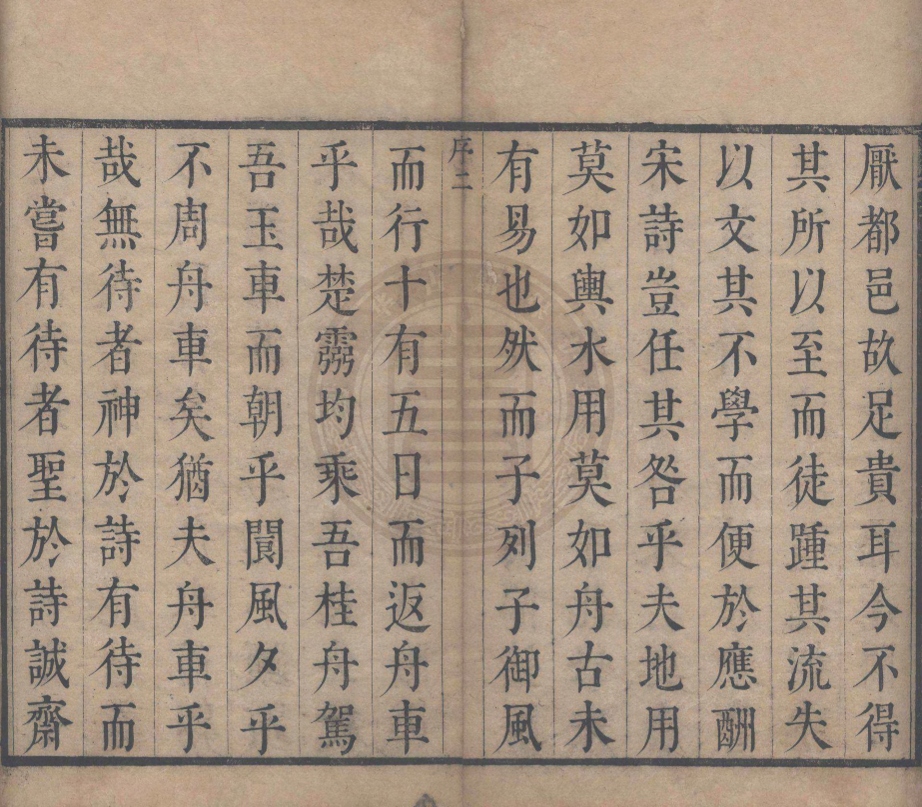 厭都邑故足貴耳今不得
其所以至而徒踵其流失
以文其不學而便於應酬
宋詩豈任其咎乎夫地用
莫如輿水用莫如舟古未
有易也然而子列子御風
序二
而行十有五日而返舟車
乎哉楚靈均乘吾桂舟駕
吾玉車而朝乎閬風夕乎
不周舟車矣猶夫舟車乎
哉無待者神於詩有待而
未嘗有待者聖於詩誠齋